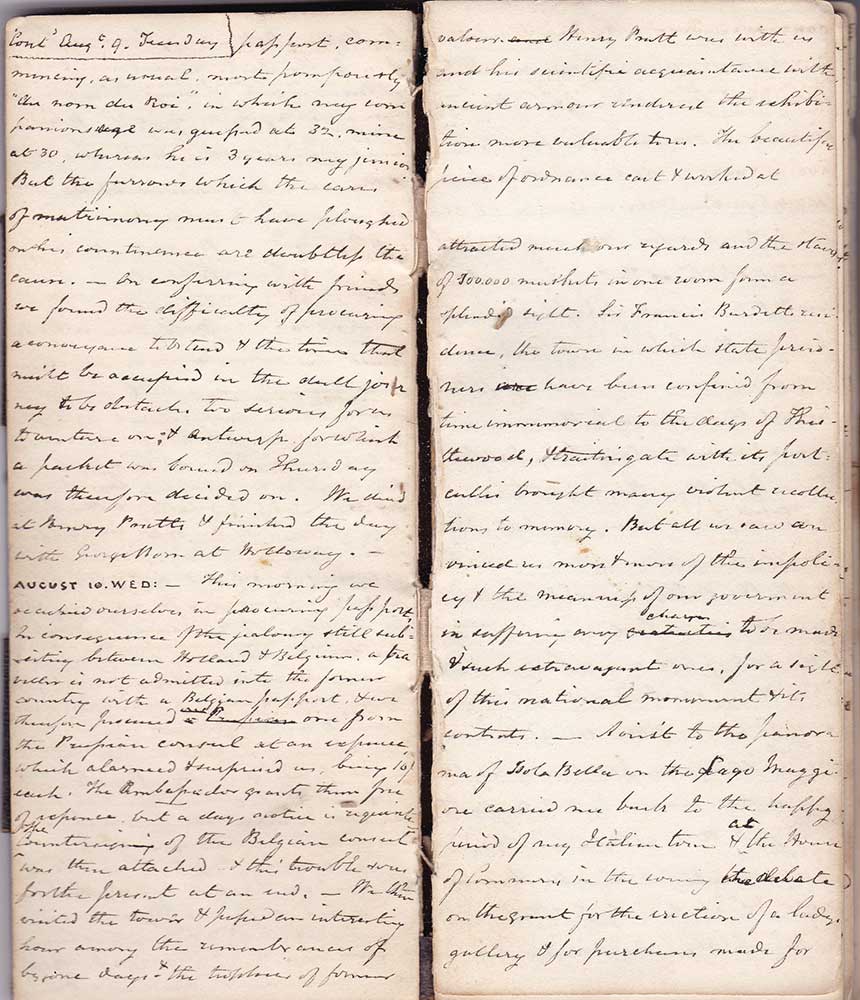 Cont.d Aug.t 9. Tuesday passport, com-
mencing, as usual, most pompously
"Au nom du Roi", in which my com
panions age was guessed at 32, mine
at 30, whereas he is 3 years my junior
But the furrows which the cares
of matrimony must have ploughed
on his countenance are doubtless the
cause. — On conferring with friends
we found the difficulty of procuring
a conveyance to Ostend & the time that
must be occupied in the dull jour
ney to be obstacles too serious for us
to venture on; & Antwerp, for which
a packet was bound on Thursday
was therefore decided on. We dined
at Henry Pratts & finished the day
with George at Holloway. —
AUGUST 10. WED: — This morning we
occupied ourselves in procuring passports,
In consequence of the jealousy still sub-
sisting between Holland & Belgium, a tra
veller is not admitted into the former
country with a Belgian passport, & we
therefore procured a Prussian one from
the Prussian consul at an expence,
which alarmed & surprised us, being 10/
each. The Ambassador grants them free
of expence, but a days notice is requisite
The countersigning of the Belgian consul
was then attached & this trouble was
for the present at an end. — We then
visited the tower & passed an interesting
hour among the remembrances of
bygone days & the trophies of former
valour. and Henry Pratt was with us
and his scientific acquaintance with
ancient armour rendered the exhibi-
tion more valuable to us. The beautiful
piece of ordnance cast & worked at
attracted much our regards and the stands
of 300.000 muskets in one room form a
splendid sight. Sir Francis Burdetts resi
dence, the town in which state priso-
ners are have been confined from
time immemorial to the days of This-
tlewood, & traitors gate with its port-
cullis brought many violent recollec
tions to memory. But all we saw con
vinced us more & more of the impoli-
cy & the meanness of our goverment
in suffering any charges to be made
& such extravagant ones, for a sight
of this national monument & its
contents. — A visit to the panora
ma of Isola Bella on the Lago Maggi-
ore carried me back to the happy
period of my Italian tour & at the House
of Commons in the evening the debate
on the grant for the erection of a ladys
gallery & for purchases made for